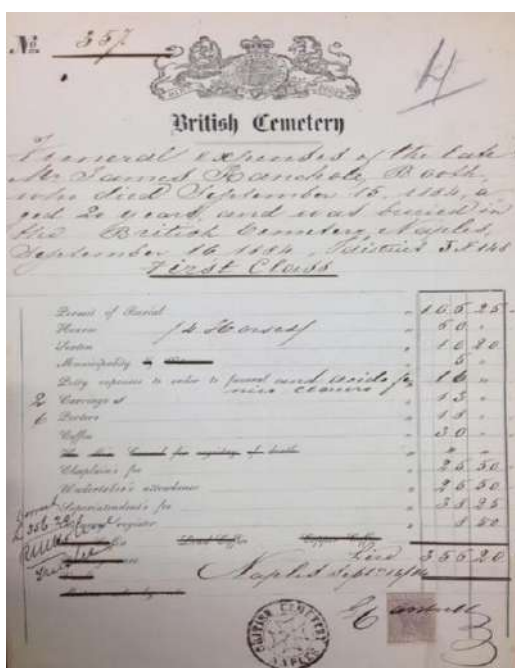 No 357
4
British Cemetery
Funeral expenses of the late
Mr James Booth
who died September 15, 1884, a
ged 20 years, and was buried in
the British Cemetery Naples,
September 16 1884. District 3 N 148
First Class
Permit of Burial " 106 25
Hearse / 4 Horses / " 50 "
Sexton " 10 20
Municipality " 5 "
Petty expenses in order to funeral and " 16 "
2 Carriages at " 13 "
6 Porters " 18 "
Coffin " 30 "
for registry of death " " "
Chaplain's fee " 25 50
Undertaker's attendance " 25 50
Superintendent's fee " 38 25
register 8 50
Lead Coffin Copper Coffin
Lire 355 20
Naples Sept
BRITISH CEMETERY
NAPLES